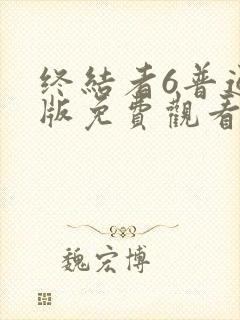 终結者6普通
版免費觀看
魏宏博